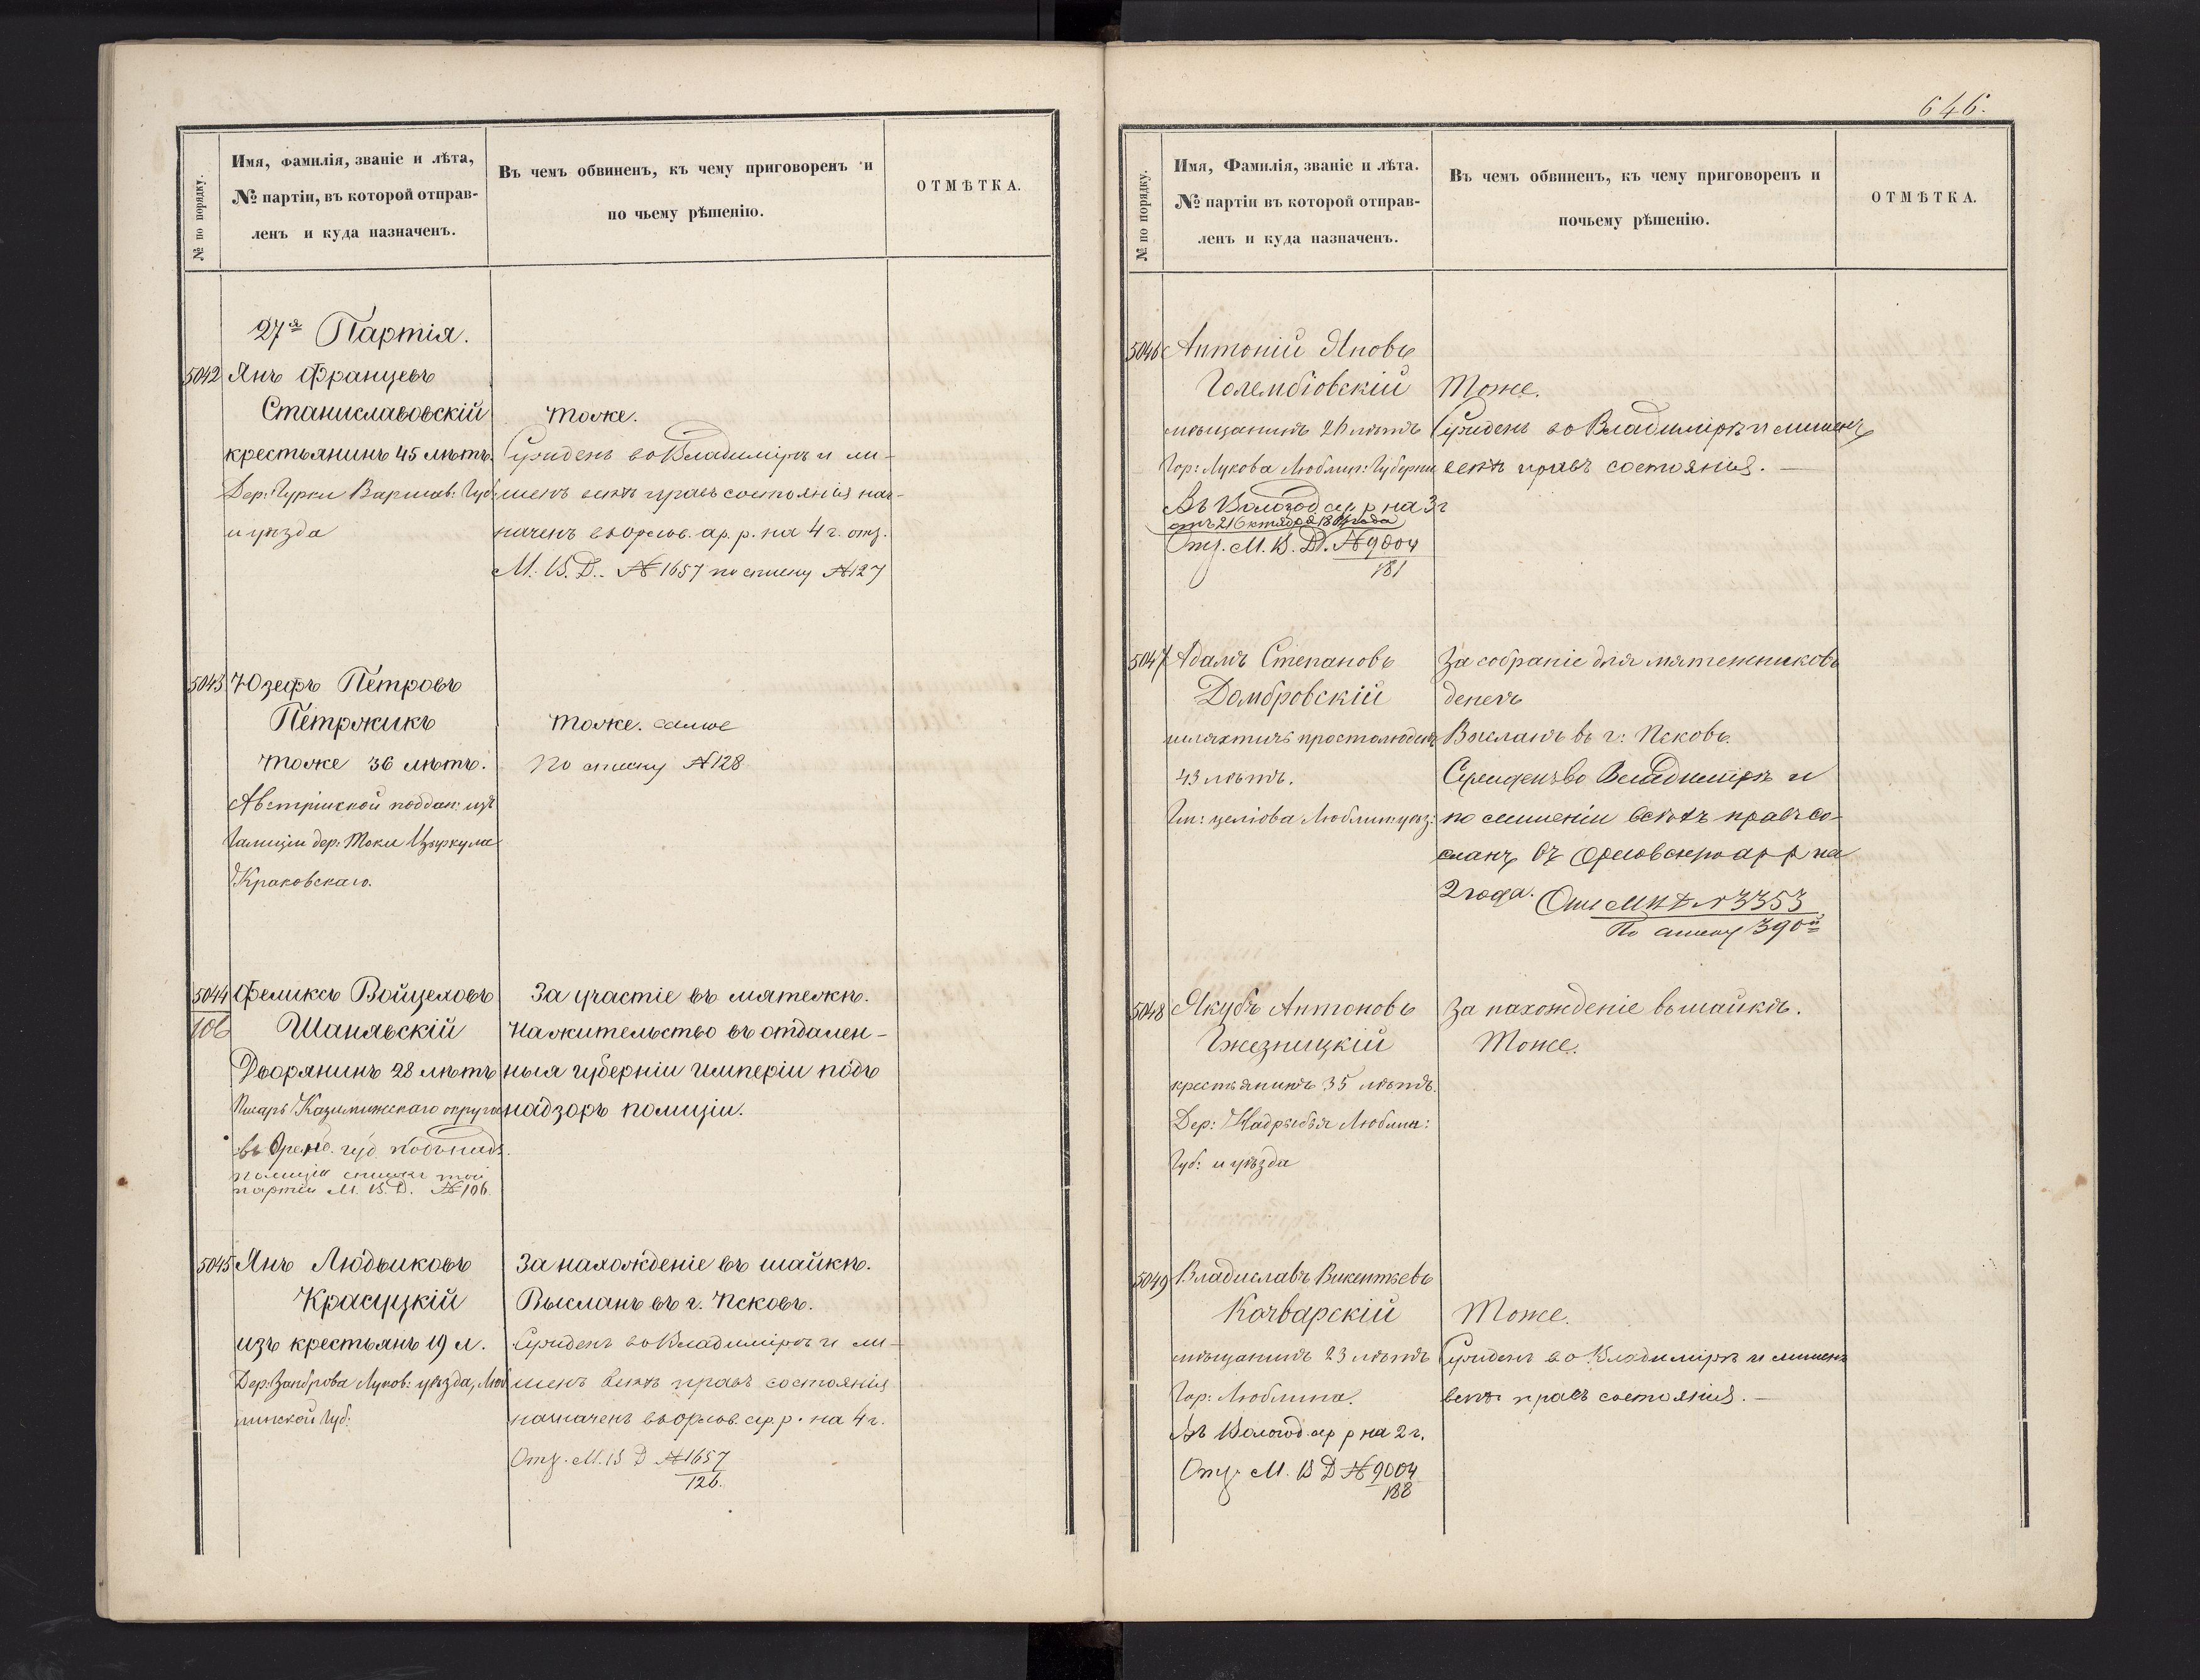 № по порядку.
Имя, фамилія, званіе и лѣта,
№ партіи, въ которой отправ-
ленъ и куда назначенъ.
Въ чемъ обвиненъ, къ чему приговоренъ и
по чьему рѣшенію.
ОТМѢТКА.
27я Партія.
5042 Янъ Францевъ
Станиславовскій
крестьянинъ 45 лѣтъ.
Дер: Гурки Варшав: Губ:
и уѣзда
тоже.
Сужденъ во Владимірѣ и ли-
шенъ всѣхъ правъ состоянія наз-
наченъ въ Орлов. ар. р. на 4 г. отз.
М. В. Д. № 1657 по списку № 127
5043 Юзефъ Петровъ
Петржикъ
тоже 36 лѣтъ.
Австрійской поддан: изъ
Галиціи дер: Токи Цыркула
Краковскаго.
тоже. самое
По списку № 128
5044 Феликсъ Войцеховъ
106
Шаняьскій
Дворянинъ 28 лѣтъ
Писарь Казимижскаго округа
въ Оренб. губ. подъ надз.
полиціи списки той
партіи М. В. Д. № 106
За участіе въ мятежѣ.
На жительство въ отдален-
ныя губерніи имперіи подъ
надзоръ полиціи.
5045 Янъ Людвиковъ
Красуцкій
изъ крестьянъ 19 л.
Дер: Луков: уѣзда, Люб
линской Губ:
За нахожденіе въ шайкѣ.
Высланъ въ г. Псковъ.
Сужденъ во Владимірѣ и ли-
шенъ всѣхъ правъ состоянія
назначенъ въ Орлов. ар. р. на 4 г.
Отз. М. В Д № 1657
126.
646.
№ по порядку.
Имя, Фамилія, званіе и лѣта.
№ партіи въ которой отправ-
ленъ и куда назначенъ.
Въ чемъ обвиненъ, къ чему приговоренъ и
почьему рѣшенію.
ОТМѢТКА.
5046 Антоній Яновъ
Голембіовскій
мѣщанинъ 26 лѣтъ
Гор: Лукова Люблин: Губерніи
Въ Вологод ар. р на 3 г
отъ 21 Октября
Отз. М. В. Д. № 9004
181
Тоже.
Сужденъ во Владимірѣ и лишенъ
всѣхъ правъ состоянія. —
5047 Адамъ Степановъ
Домбровскій
шляхтичъ простолюдинъ
43 лѣтъ.
Люблин: уѣз:
За собраніе для мятежниковъ
денегъ
Высланъ въ г: Псковъ.
Сужденъ во Владимірѣ и
по лишеніи всѣхъ правъ со-
сланъ въ Орловскую ар р на
2 года. Отз М В Д № 3353
По списку 390й
5048 Якубъ Антоновъ
Гжезницкій
крестьянинъ 35 лѣтъ.
Дер: Надрыбья Люблин:
Губ: и уѣзда
За нахожденіе въ шайкѣ.
Тоже.
5049 Владиславъ Викентьевъ
Качварскій
мѣщанинъ 23 лѣтъ
Гор: Люблина.
Въ Вологод. ар р на 2 г.
Отз. М. В Д № 9004
188
Тоже.
Сужденъ во Владимірѣ и лишенъ
всѣхъ правъ состоянія. —